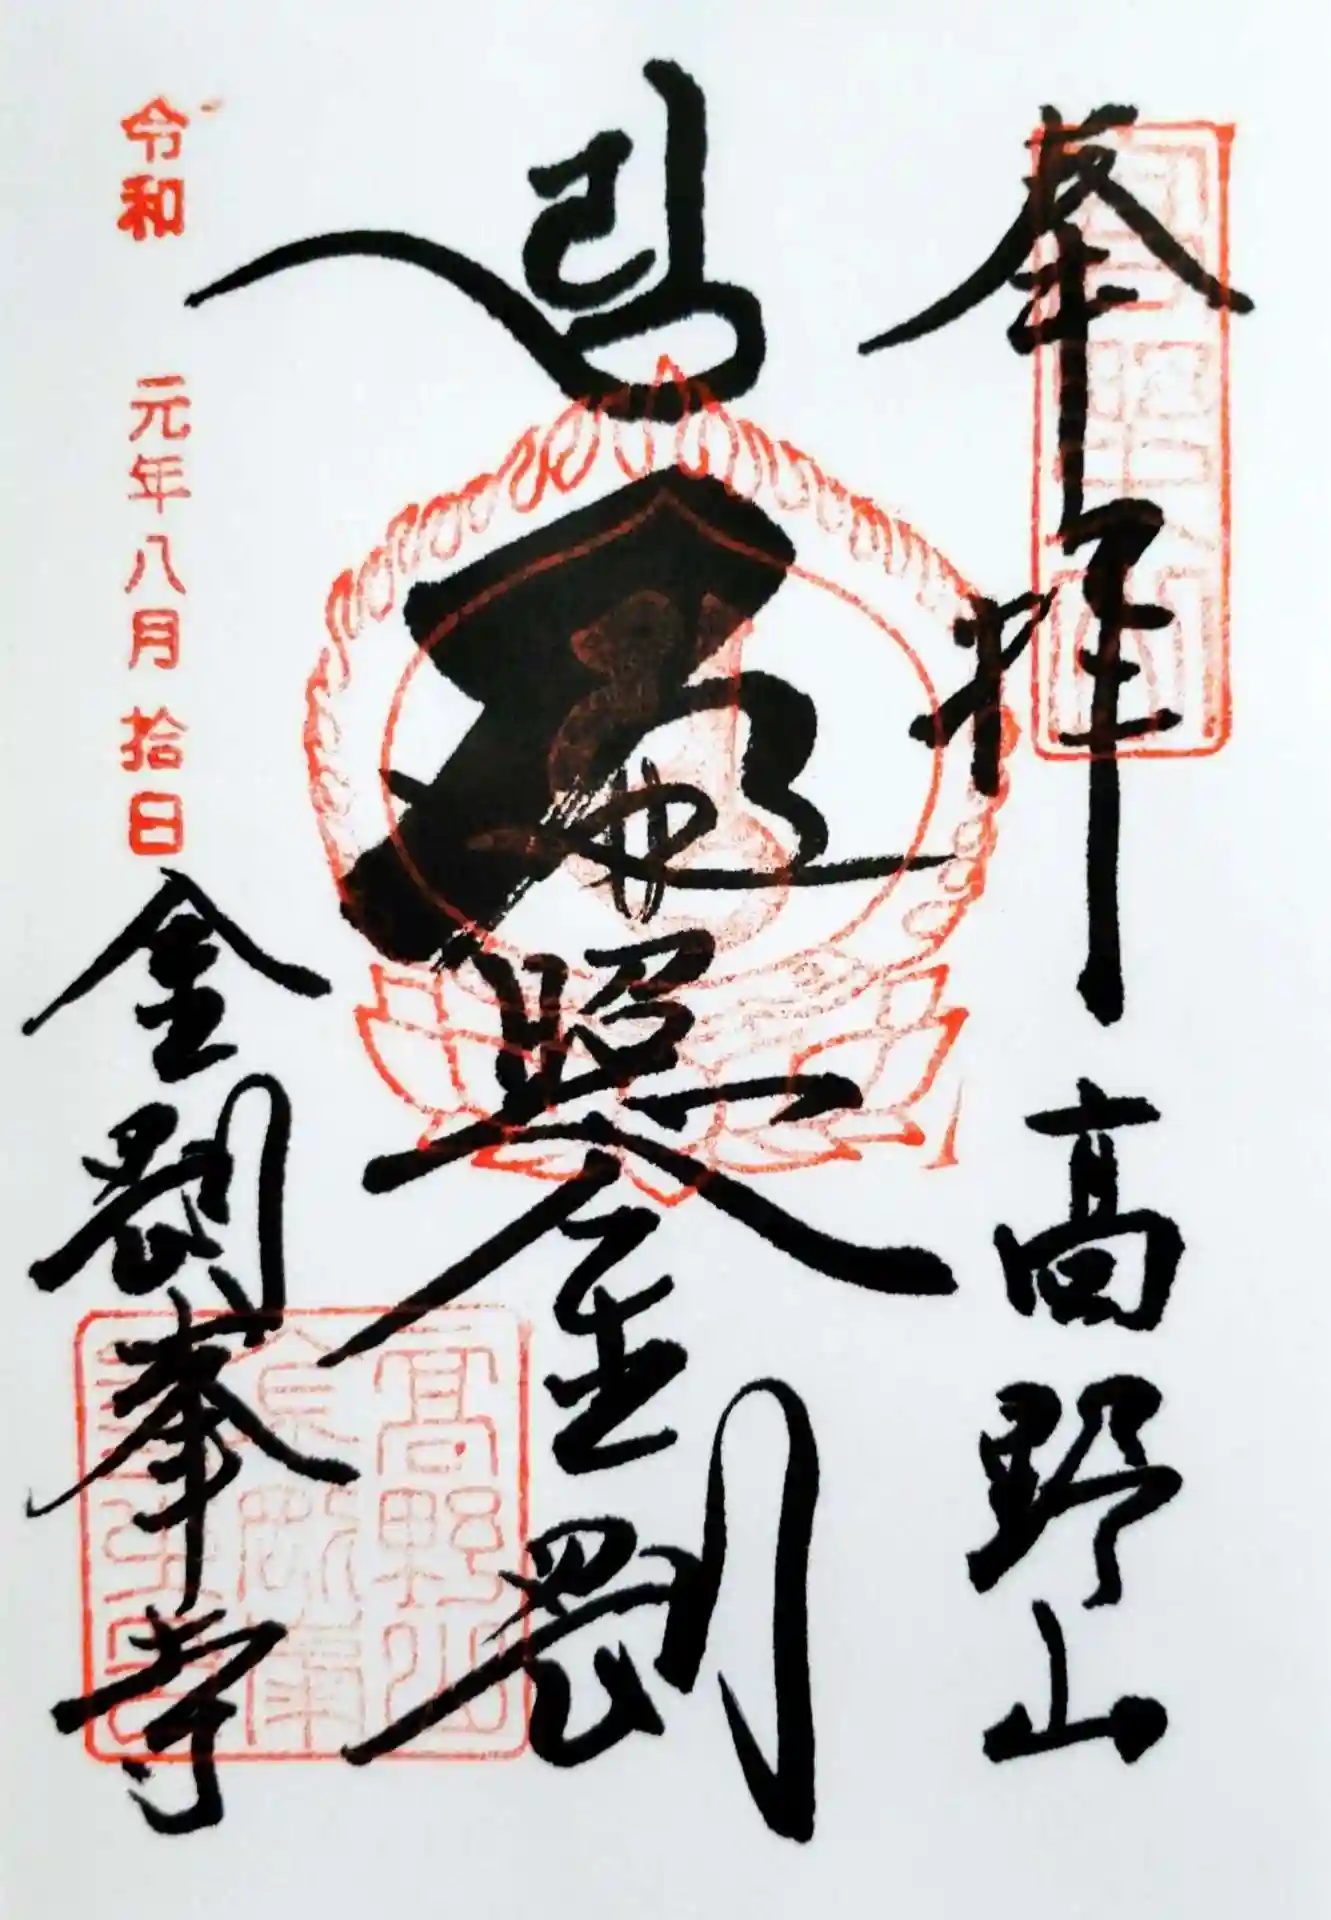 奉拝 高野山
遍照金剛
令和 元年八月拾日
金剛峯寺
高野山